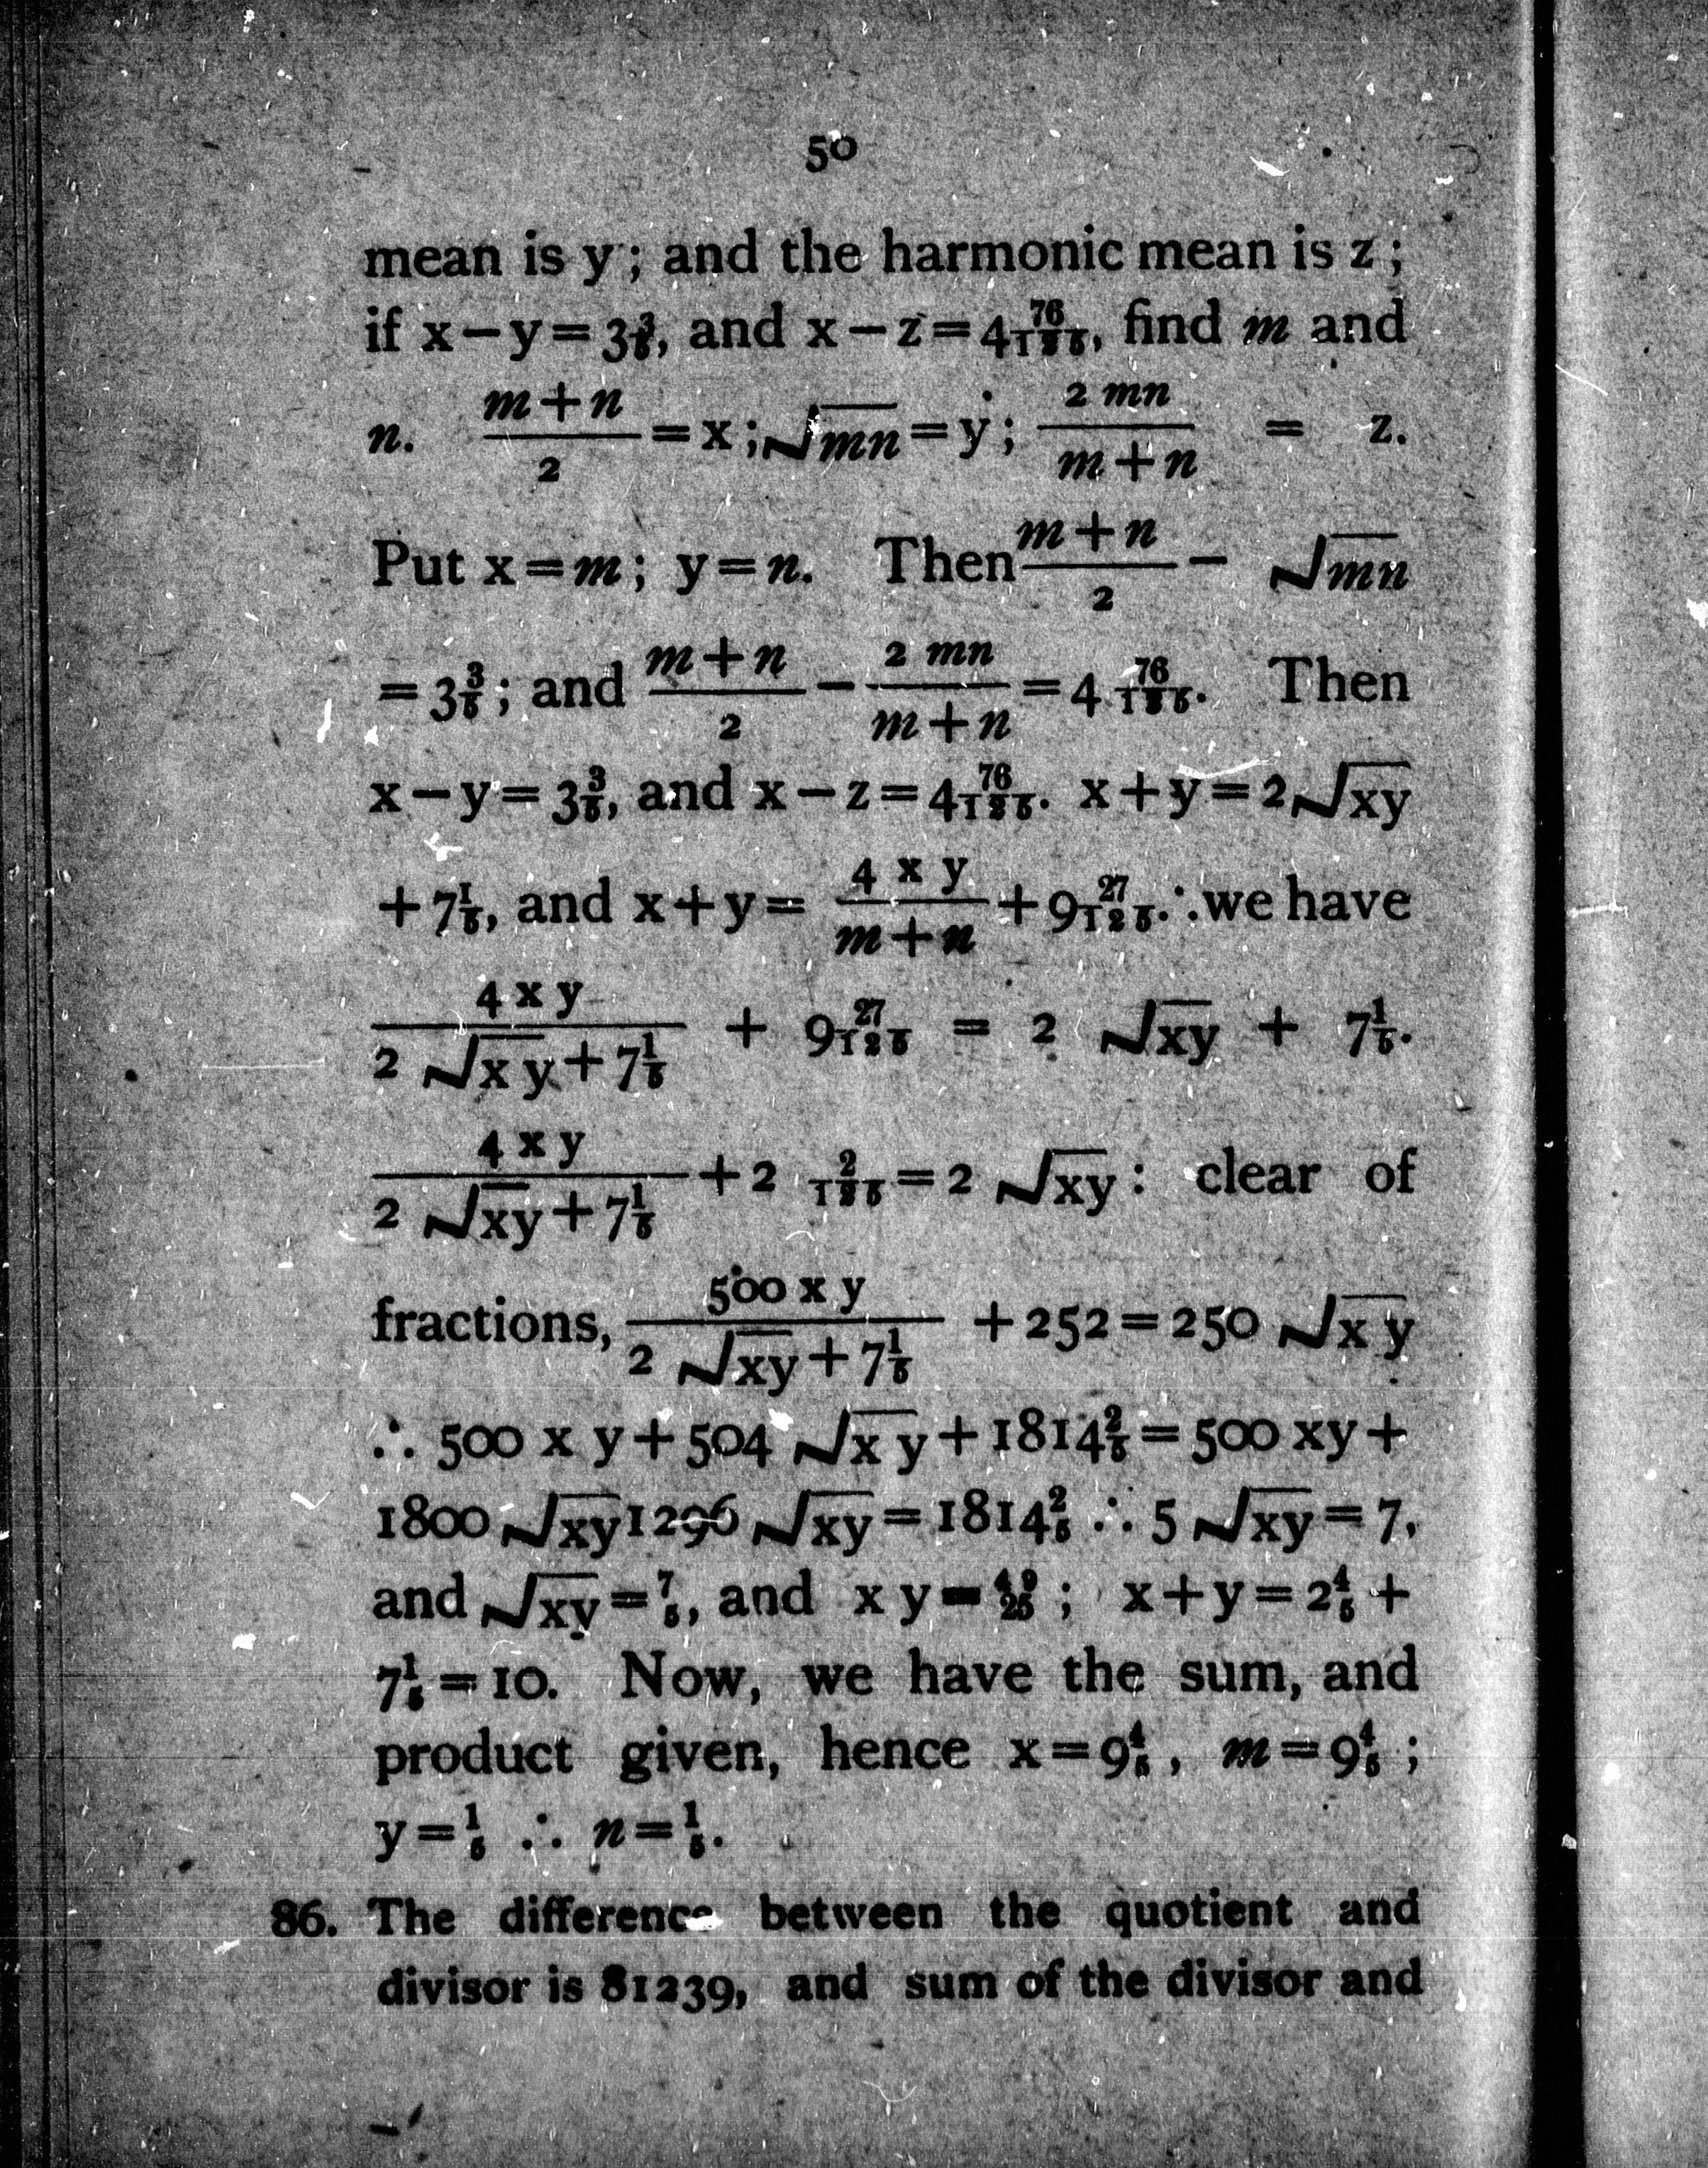 50
mean is y ; and the harmonic mean is z ;
if x−y=3 3/5, and x−z=4 76/125, find m and
n. (m+n)/2 =x ; √mn=y ; 2 mn/(m+n) = z.
Put x=m ; y=n. Then (m+n)/2 − √mn
=3 3/5 ; and (m+n)/2 − 2 mn/(m+n) =4 76/125. Then
x−y=3 3/5, and x−z=4 76/125. x+y=2√xy
+7 1/5, and x+y= 4 x y/(m+n) +9 27/125 ∴ we have
4 x y/(2 √x y+7 1/5) + 9 27/125 = 2 √xy + 7 1/5.
4 x y/(2 √xy+7 1/5) +2 2/125=2 √xy : clear of
fractions, 500 x y/(2 √xy+7 1/5) +252=250 √x y
∴ 500 x y+504 √x y+1814 2/5=500 xy+
1800 √xy 1296 √xy=1814 2/5 ∴ 5 √xy=7,
and √xy=7/5, and x y=49/25 ; x+y=2 4/5+
7 1/5=10. Now, we have the sum, and
product given, hence x=9 4/5, m=9 4/5 ;
y=1/5 ∴ n=1/5.
86. The difference between the quotient and
divisor is 81239, and sum of the divisor and